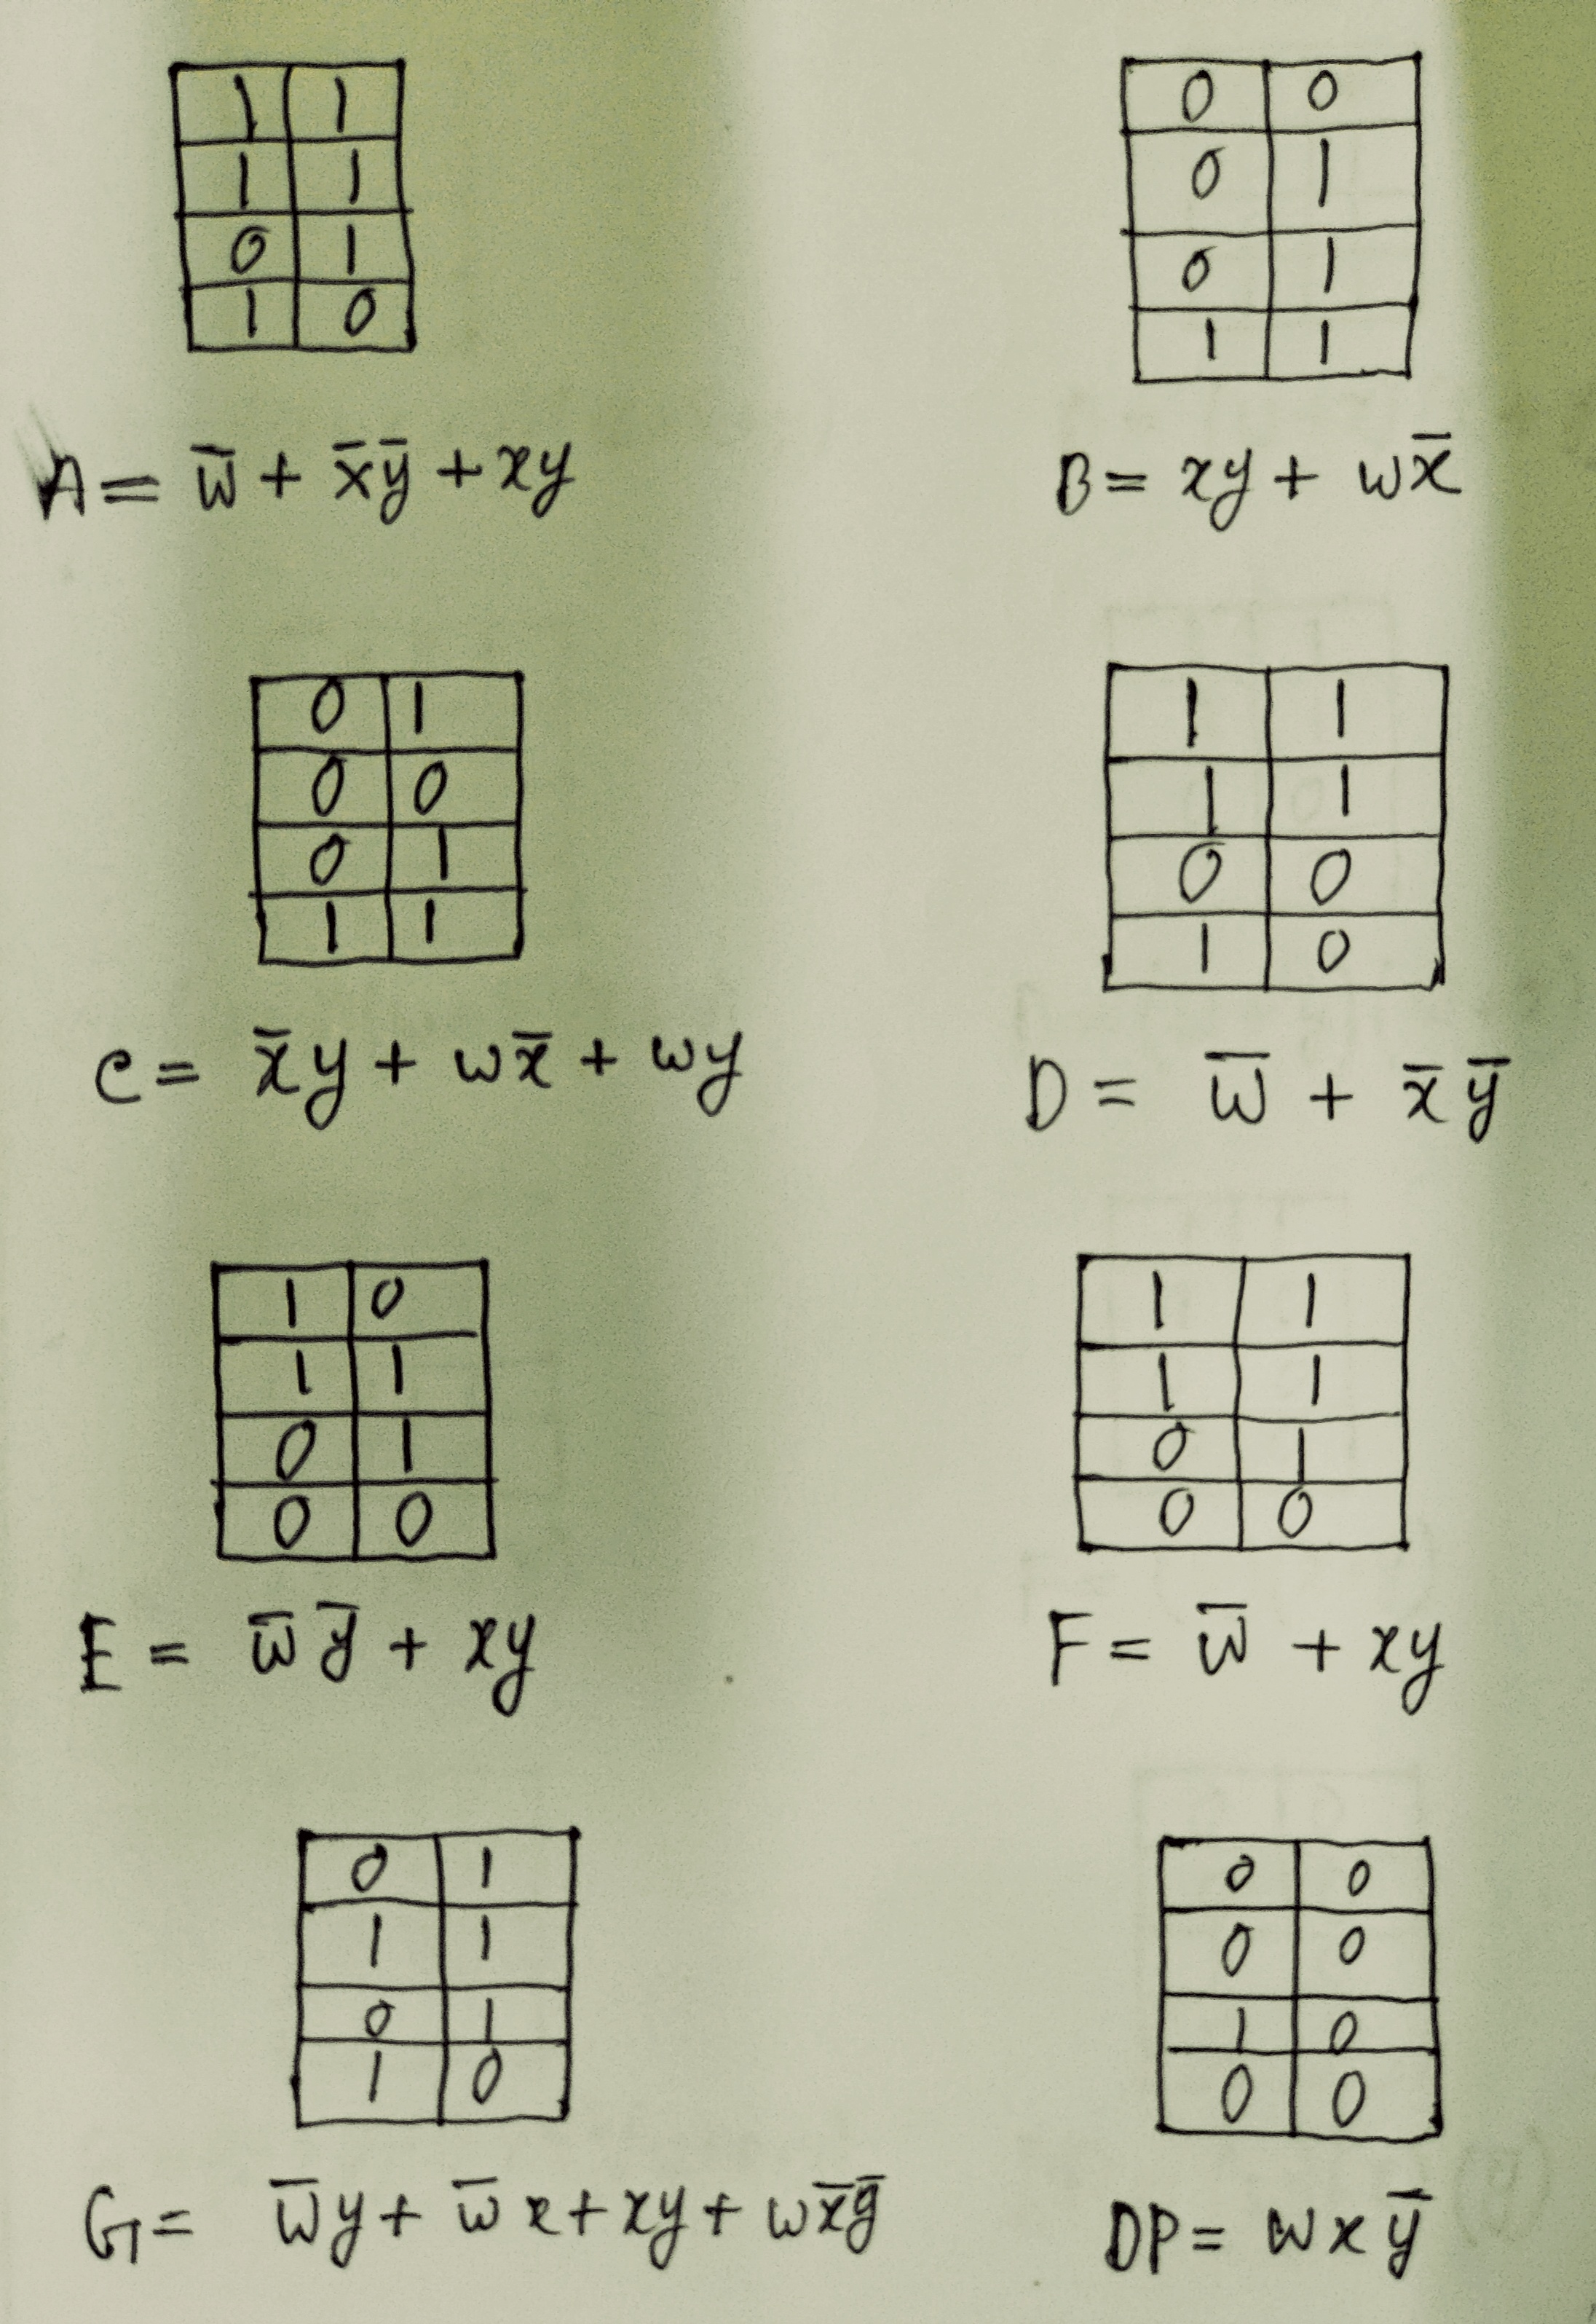 1 1
1 1
0 1
1 0
A = w̅ + x̅y̅ + xy
0 0
0 1
0 1
1 1
B = xy + wx̅
0 1
0 0
0 1
1 1
C = x̅y + wx̅ + wy
1 1
1 1
0 0
1 0
D = w̅ + x̅y̅
1 0
1 1
0 1
0 0
E = w̅y̅ + xy
1 1
1 1
0 1
0 0
F = w̅ + xy
0 1
1 1
0 1
1 0
G = w̅y + w̅x + xy + wx̅y̅
0 0
0 0
1 0
0 0
DP = wxy̅